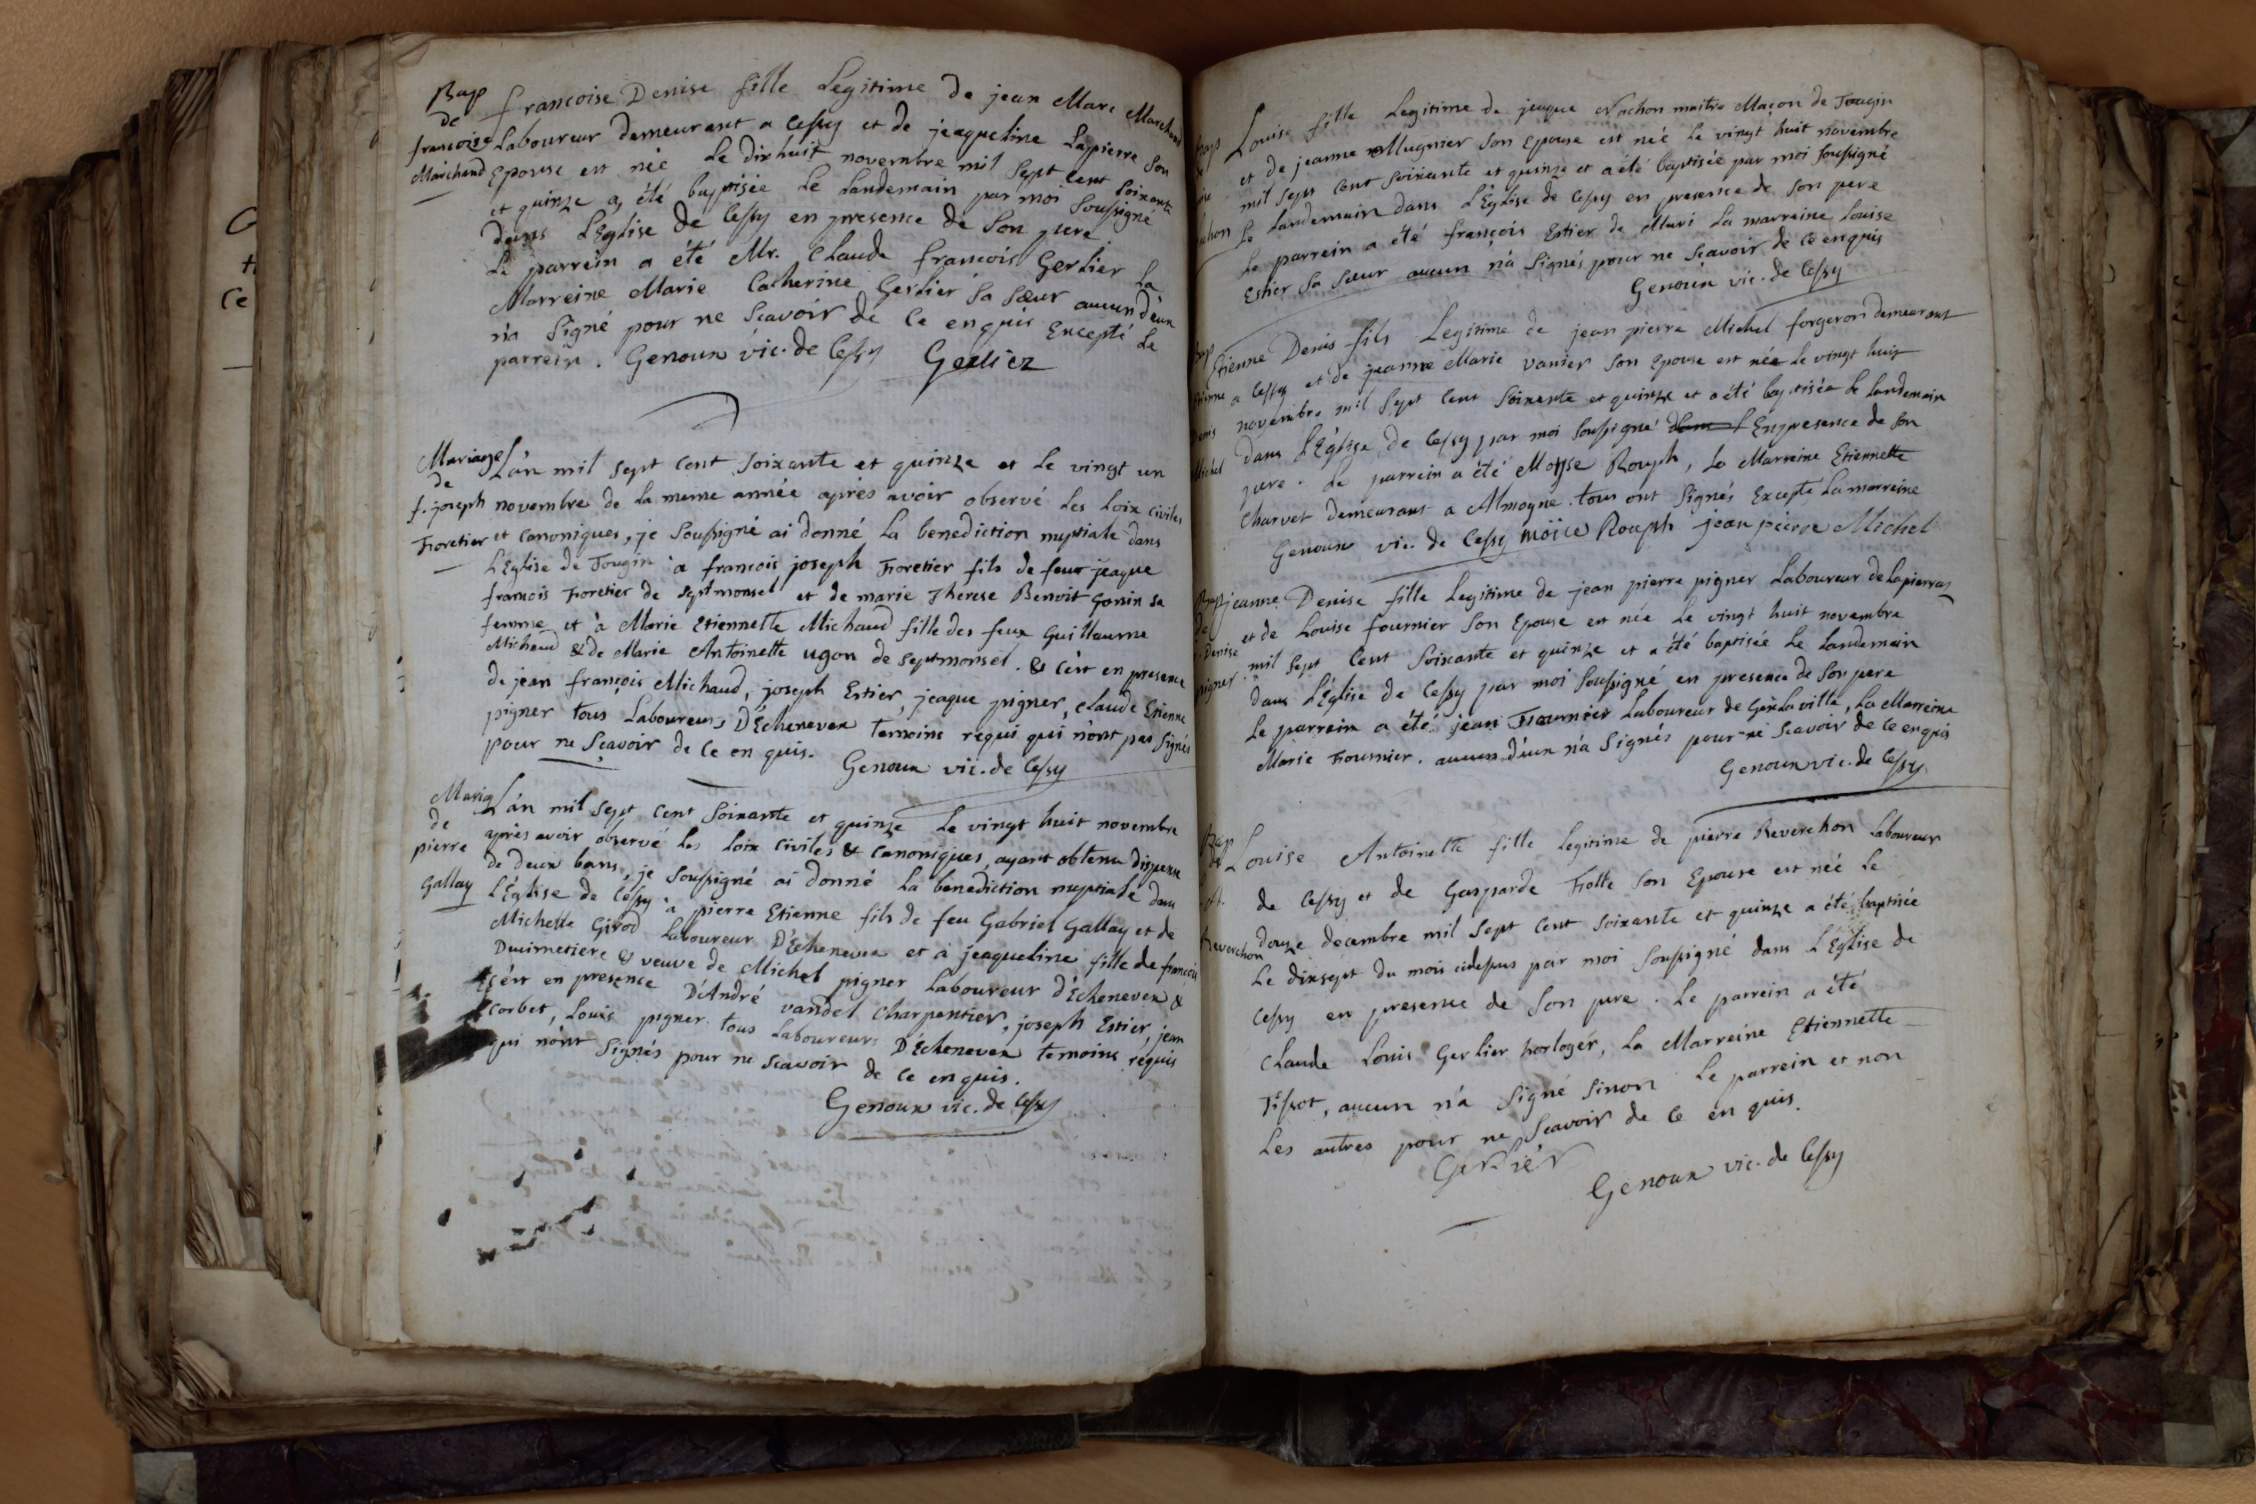 Bap
de
francoise
Marchand
francoise Denise fille Legitime de jean Marc Marchand
Laboureur demeurant a Cessy et de jeaqueline Lapierre Son
Epouse est née Le dixhuit novembre mil Sept Cent Soixante
et quinze a été baptisée Le Landemain par moi Soussigné
dans L'Eglise de Cessy en presence de Son pere
Le parrein a été Mr. Claude francois Gerlier La
Marreine Marie Catherine Gerlier Sa Sœur aucun d'eux
n'a Signé pour ne Scavoir de Ce enquis Excepté Le
parrein. Genoux vic. de Cessy Gerliez
Mariage
de
f. joseph
Foretier
L'an mil Sept Cent Soixante et quinze et Le vingt un
novembre de La meme année après avoir observé Les Loix Civiles
et Canoniques, je Soussigné ai donné La benediction nuptiale dans
L'Eglise de Tougin à francois joseph Foretier fils de feu jeaque
francois Foretier de Septmonsel et de marie Therese Benoit Gonin Sa
femme et à Marie Etiennette Michaud fille des feux Guillaume
Michaud & de Marie Antoinette ugon de Septmonsel. & C'est en presence
de jean françois Michaud, joseph Estier, jeaque pigner, Claude Etienne
pigner tous Laboureurs D'Echenevex temoins requi qui n'ont pas Signés
pour ne Sçavoir de Ce en quis. Genoux vic. de Cessy
Mariag
de
pierre
Gallay
L'an mil Sept Cent Soixante et quinze Le vingt huit novembre
après avoir observé Les Loix Civiles & Canoniques, ayant obtenu dispense
de deux bans, je Soussigné ai donné La benediction nuptiale dans
L'Église de Céssy à pierre Etienne fils de feu Gabriel Gallay et de
Michelle Girod Laboureur D'Echenevex et à jeaqueline fille de francois
Duimetiere & veuve de Michel pigner Laboureur d'Echenevex &
C'est en presence D'André vandel Charpentier, joseph Estier, jean
Corbet, Louis pigner tous Laboureurs D'Echenevex temoins requis
qui n'ont Signés pour ne Scavoir de Ce en quis.
Genoux vic. de Cessy
Louise fille Legitime de jeaque Nachon maitre Maçon de Tougin
et de jeanne Mugnier Son Epouse est née Le vingt huit novembre
mil Sept Cent Soixante et quinze et a été baptisée par moi Soussigné
Le Landemain dans L'Eglise de Cessy en presence de Son pere
Le parrein a été françois Estier de Muri La marreine Louise
Estier Sa Sœur aucun n'a Signés pour ne Sçavoir de Ce enquis
Genoux vic. de Cessy
Denis
Michel
Etienne Denis fils Legitime de jean pierre Michel forgeron demeurant
a Cessy et de jeanne Marie vanier Son Epouse est née Le vingt huit
novembre mil Sept Cent Soixante et quinze et a été baptisée Le Landemain
dans L'Eglise de Cessy par moi Soussigné Enpresence de Son
pere. Le parrein a été Moyse Rouph, La Marreine Etiennette
Charvet demeurant a Almogne. tous ont Signés Excepté La marreine
Genoux vic. de Cessy möice Rouph jean pierre Michel
Denise
pigner
jeanne Denise fille Legitime de jean pierre pigner Laboureur de Lapierraz
et de Louise fournier Son Epouse est née Le vingt huit novembre
mil Sept Cent Soixante et quinze et a été baptisée Le Landemain
dans L'Église de Cessy par moi Soussigné en presence de Son pere
Le parrein a été jean Fournier Laboureur de Gex La ville, La Marreine
Marie Fournier. aucun d'eux n'a Signés pour ne Scavoir de Ce enquis
Genoux vic. de Cessy
Bap
de
A.
Reverchon
Louise Antoinette fille Legitime de pierre Reverchon Laboureur
de Cessy et de Gasparde Folle Son Epouse est née Le
douze decembre mil Sept Cent Soixante et quinze a été baptisée
Le dixsept du mois cidessus par moi Soussigné dans L'Eglise de
Cessy en presence de Son pere. Le parrein a été
Claude Louis Gerlier horloger, La Marreine Etiennette
Tissot, aucun n'a Signé Sinon Le parrein et non
Les autres pour ne Scavoir de Ce en quis.
Gerlier
Genoux vic. de Cessy